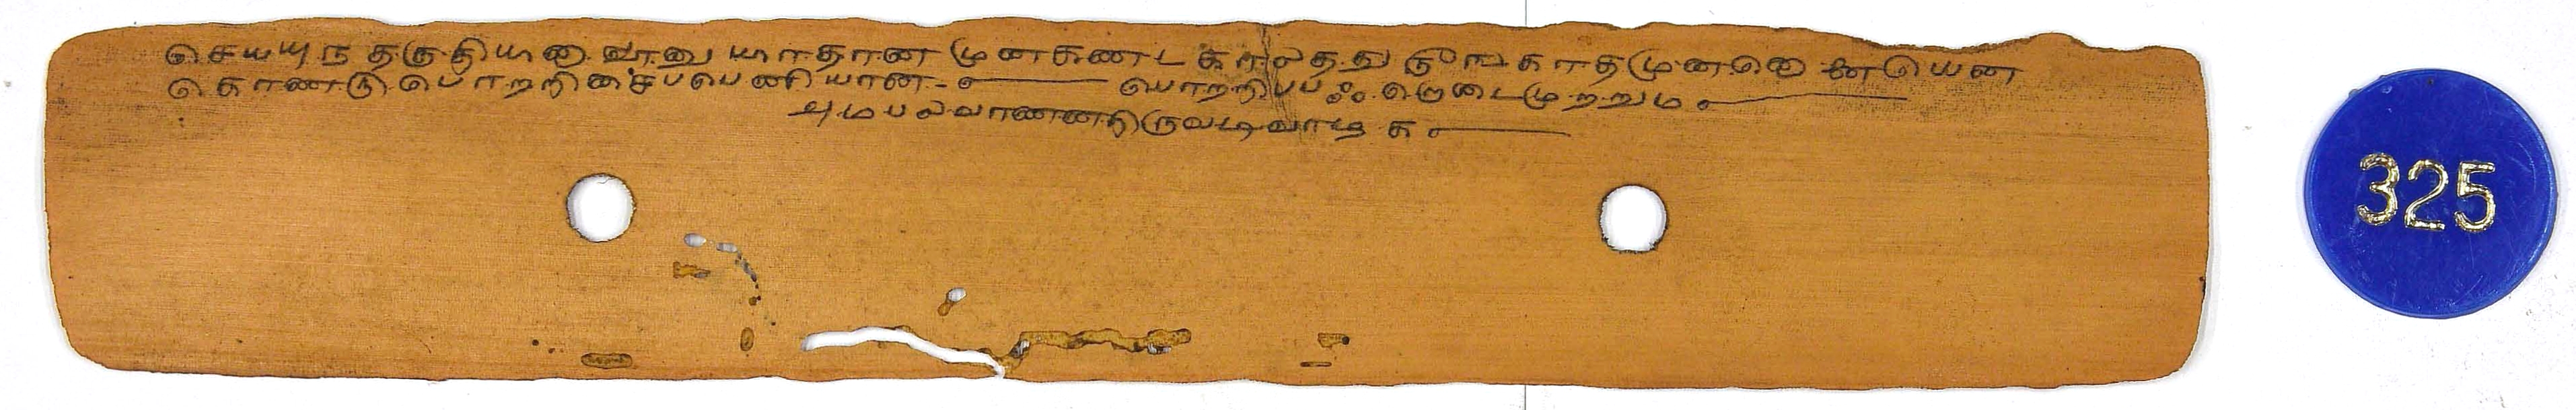 செயயுந தகுதியினாலானு யாதான முனகணட காலதது நீஙகாதமுனனெ னையென
கொணடுபொறறிசைபபெணியான- பொறறிபபஃறெடைமுறறும
அமபலவாணனதிருவடிவாழக
325